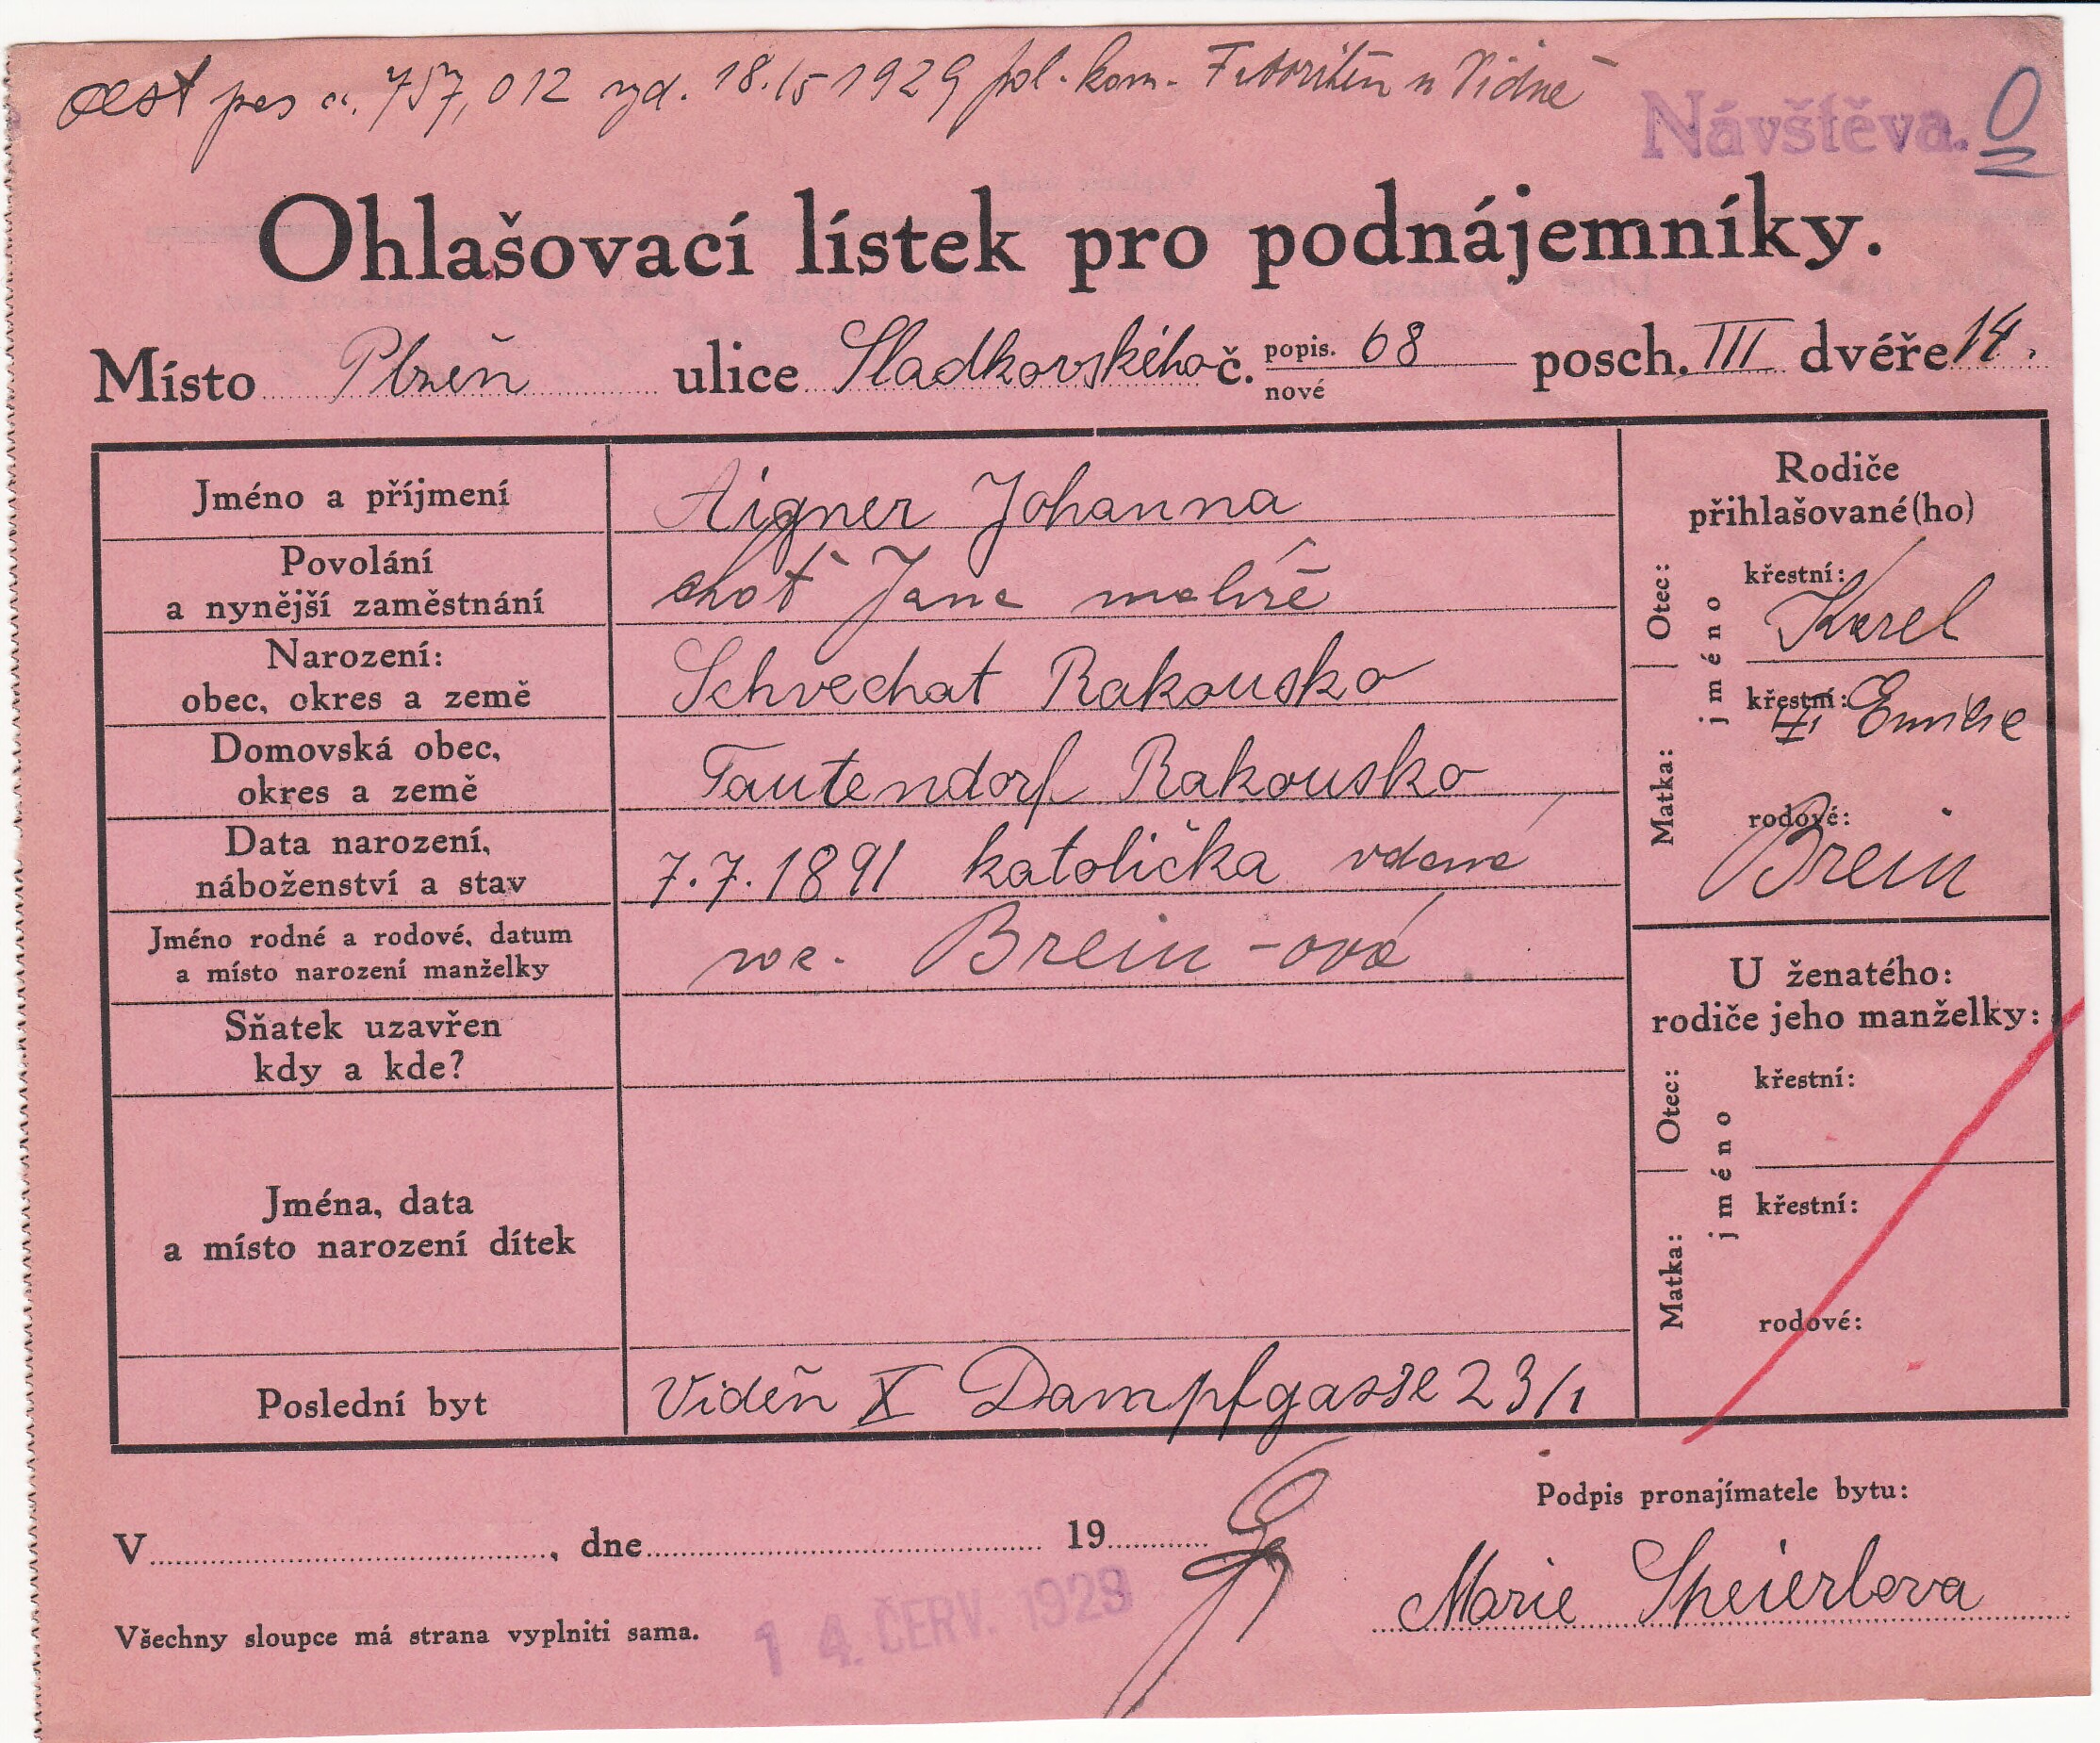 pas č. 757,012 vyd. 18./5 1929 pol. kom. Favoriten u Vídně
Návštěva. 0
Ohlašovací lístek pro podnájemníky.
Místo Plzeň ulice Sladkovského č. popis. 68 nové posch. III dvéře 14.
Jméno a příjmení Aigner Johanna
Povolání
a nynější zaměstnání choť Jana malíře
Narození:
obec, okres a země Schvechat Rakousko
Domovská obec,
okres a země Tautendorf Rakousko
Data narození,
náboženství a stav 7.7.1891 katolička vdaná
Jméno rodné a rodové, datum
a místo narození manželky roz. Brein-ová
Sňatek uzavřen
kdy a kde?
Jména, data
a místo narození dítek
Poslední byt Videň X Dampfgasse 23/1
Rodiče
přihlašované(ho)
Otec:
Matka:
jméno
křestní:
Karel
křestní:
Emilie
rodové:
Brein
U ženatého:
rodiče jeho manželky:
Otec:
Matka:
jméno
křestní:
křestní:
rodové:
V, dne 19
Podpis pronajímatele bytu:
Marie Speierlova
Všechny sloupce má strana vyplniti sama.
14. ČERV. 1929